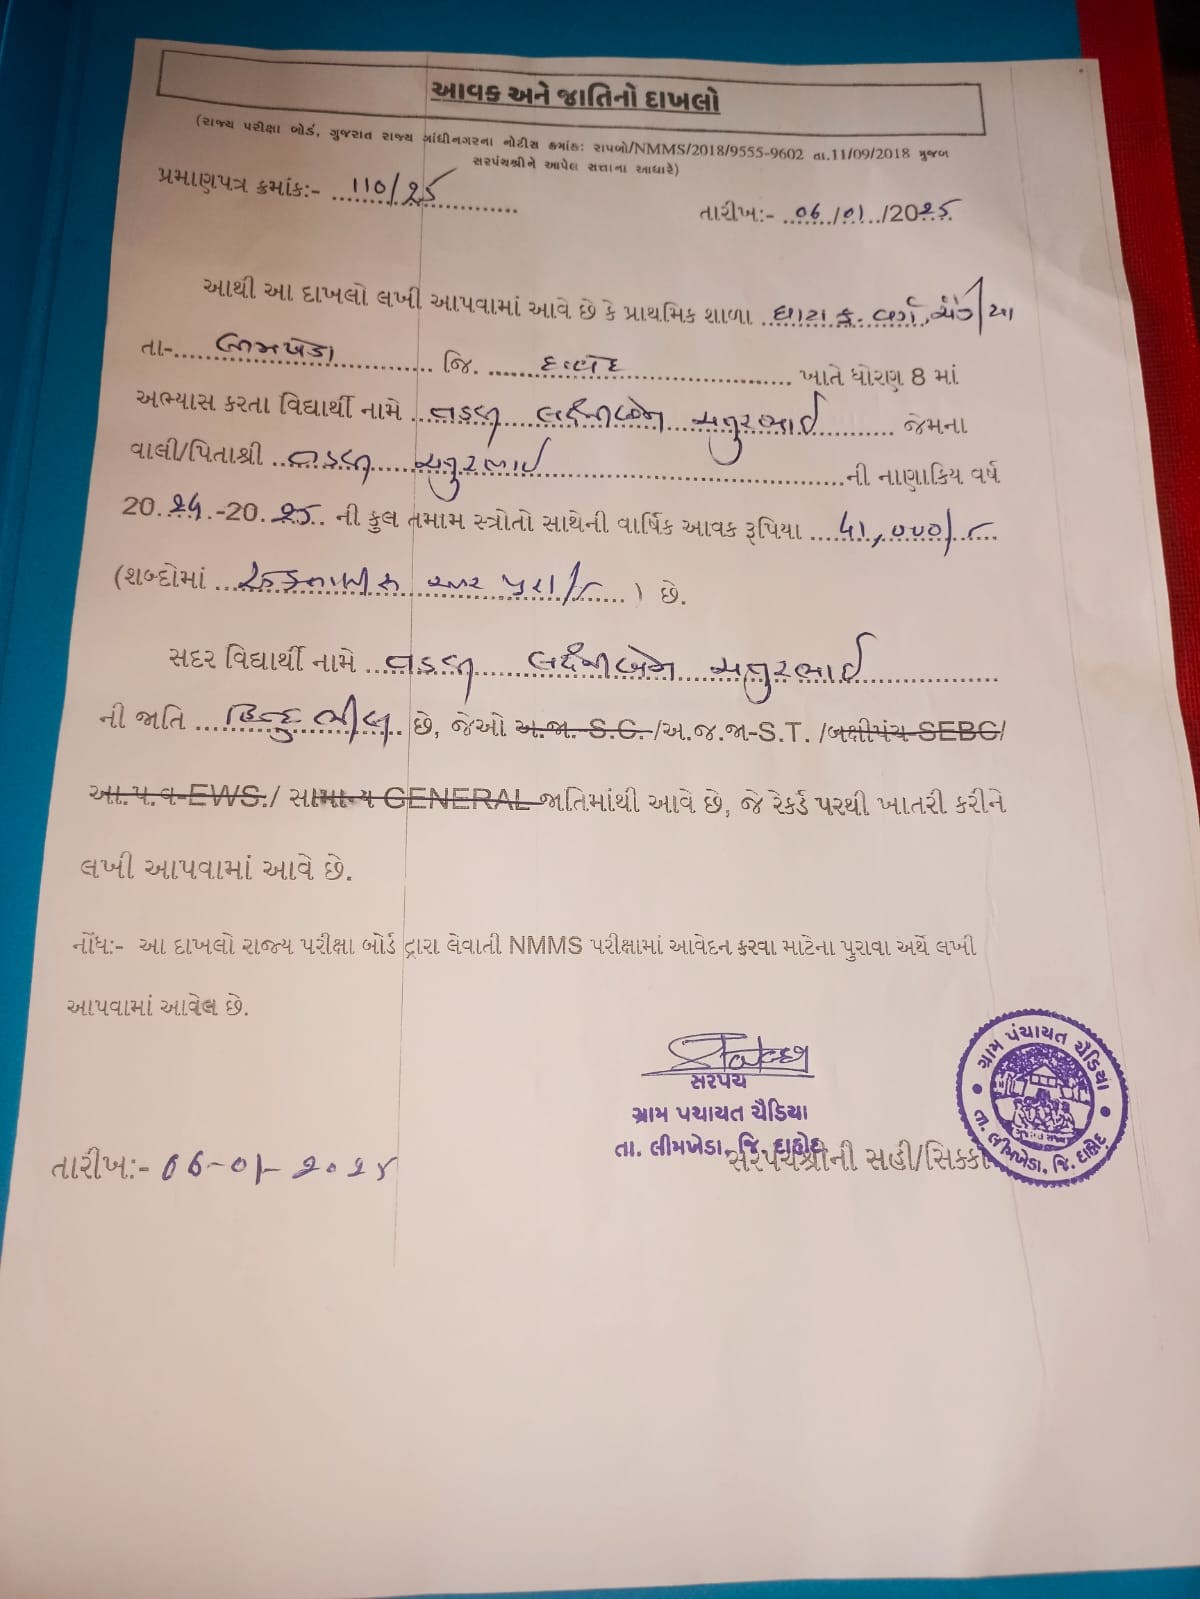 આવક અને જાતિનો દાખલો
(રાજ્ય પરીક્ષા બોર્ડ, ગુજરાત રાજ્ય ગાંધીનગરના નોટીસ ક્રમાંક: રાપબો/NMMS/2018/9555-9602 તા.11/09/2018 મુજબ
સરપંચશ્રીને આપેલ સત્તાના આધારે)
પ્રમાણપત્ર ક્રમાંક:- 110/25
તારીખ:- 06/01/2025
આથી આ દાખલો લખી આપવામાં આવે છે કે પ્રાથમિક શાળા
તા- લીમખેડા જિ. દાહોદ ખાતે ધોરણ 8 માં
અભ્યાસ કરતા વિદ્યાર્થી નામે તડવી લક્ષ્મીબેન ચતુરભાઈ જેમના
વાલી/પિતાશ્રી તડવી ચતુરભાઈ ની નાણાકિય વર્ષ
2024-2025 ની કુલ તમામ સ્ત્રોતો સાથેની વાર્ષિક આવક રૂપિયા 41,000/-
(શબ્દોમાં પુરા/-) છે.
સદર વિદ્યાર્થી નામે તડવી લક્ષ્મીબેન ચતુરભાઈ
ની જાતિ હિન્દુ ભીલ છે, જેઓ અ.જા. S.C. /અ.જ.જા-S.T. /બક્ષીપંચ-SEBC/
આ.પ.વ-EWS./ સામાન્ય GENERAL જાતિમાંથી આવે છે, જે રેકર્ડ પરથી ખાતરી કરીને
લખી આપવામાં આવે છે.
નોંધ:- આ દાખલો રાજ્ય પરીક્ષા બોર્ડ દ્વારા લેવાતી NMMS પરીક્ષામાં આવેદન કરવા માટેના પુરાવા અર્થે લખી
આપવામાં આવેલ છે.
સરપચ
ગ્રામ પચાયત ચૈડિયા
તા. લીમખેડા, જિ. દાહોદ
સરપંચશ્રીની સહી/સિક્કો
ગ્રામ પંચાયત ચૈડિયા
તા. લીમખેડા, જિ. દાહોદ
તારીખ:- 06-01-2025